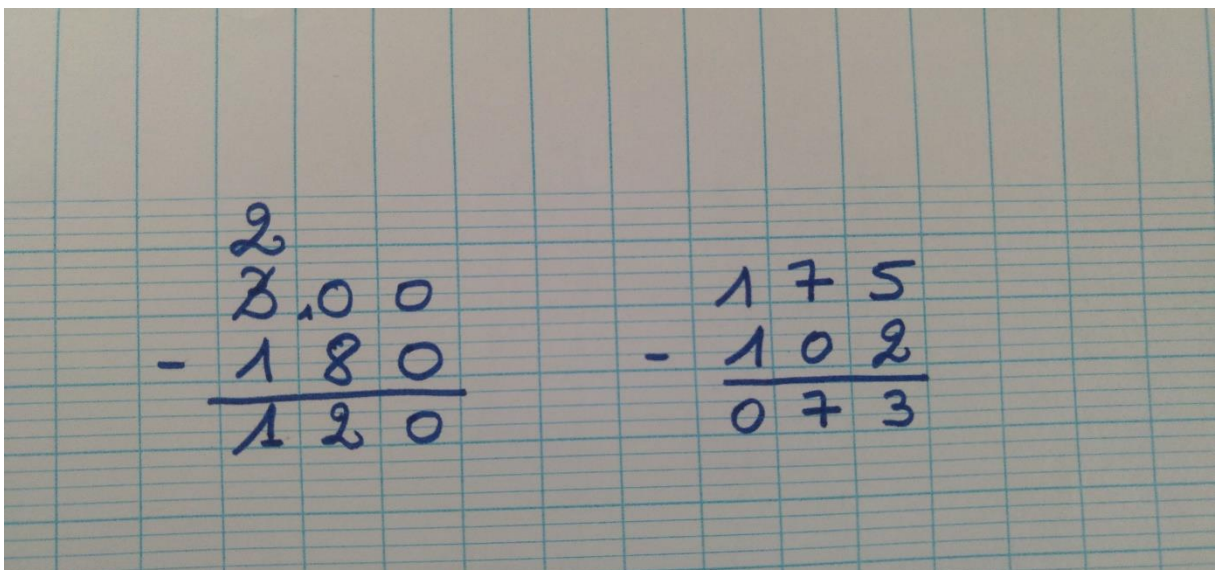 2
3 ,0 0
- 1 8 0
1 2 0
1 7 5
- 1 0 2
0 7 3